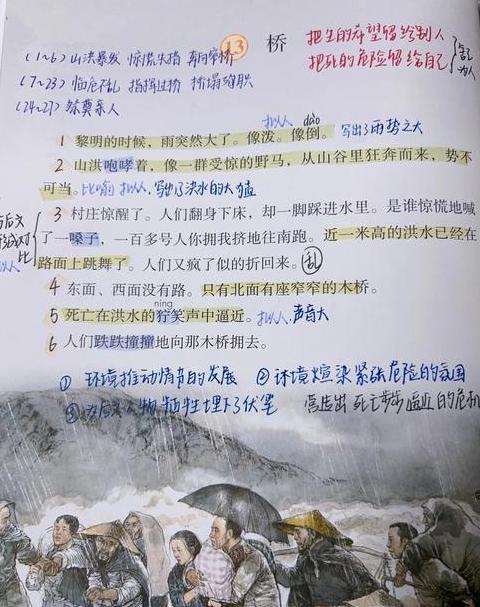 13 桥
把生的希望留给别人
把死的危险留给自己
舍己为人
(1~6)山洪暴发 惊慌失措 奔向窄桥
(7~23)临危不乱 指挥过桥 桥塌殉职
(24~27)祭奠亲人
拟人 dào
1 黎明的时候，雨突然大了。像泼。像倒。 写出了雨势之大
2 山洪咆哮着，像一群受惊的野马，从山谷里狂奔而来，势不
可当。比喻 拟人，写出了洪水的大猛
3 村庄惊醒了。人们翻身下床，却一脚踩进水里。是谁惊慌地喊
与后文
形成对比
了一嗓子，一百多号人你拥我挤地往南跑。近一米高的洪水已经在
拟人
路面上跳舞了。人们又疯了似的折回来。乱
4 东面、西面没有路。只有北面有座窄窄的木桥。
níng
5 死亡在洪水的狞笑声中逼近。拟人，声音大
6 人们跌跌撞撞地向那木桥拥去。
① 环境推动情节的发展 ②环境渲染紧张危险的氛围
③为后文人物牺牲埋下了伏笔 营造出死亡步步逼近的危机